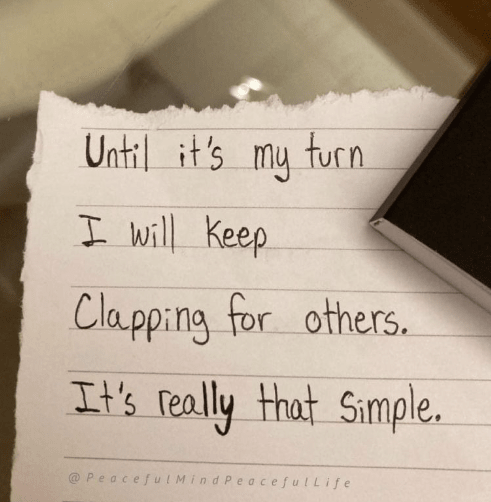 Until it's my turn
I will keep
Clapping for others.
It's really that simple.
@PeacefulMindPeacefulLife